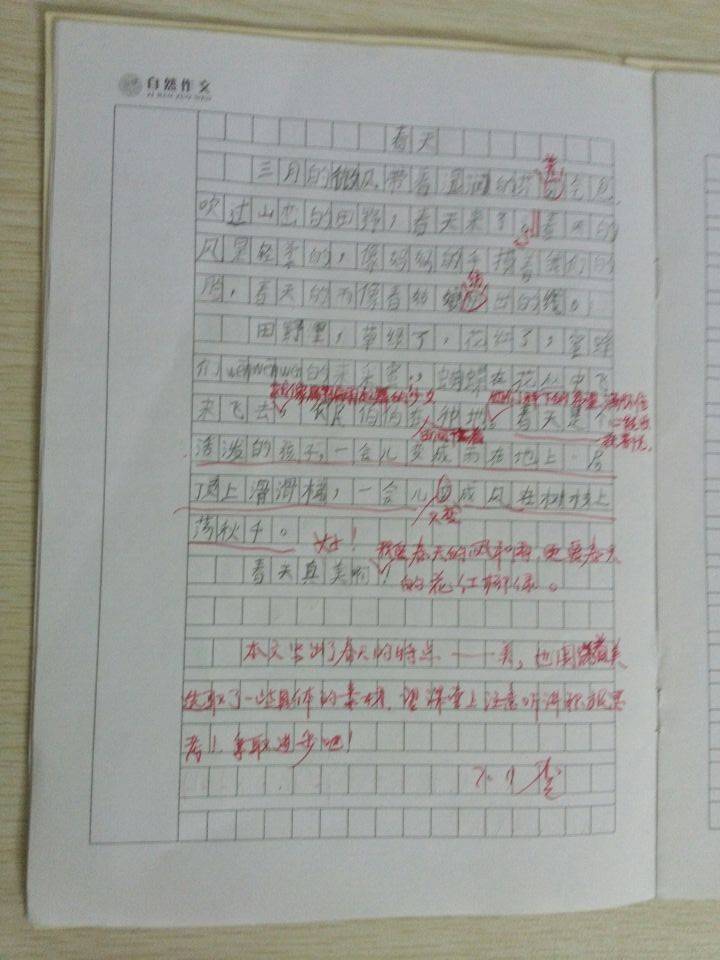 自然作文
春天
三月的微风,带着湿润的花的气息,
吹过山峦的田野,春天来了,春天的
风是轻柔的,像妈妈的手摸着我们的
脸,春天的雨像春姑娘 出的线。
田野里,草绿了,花红了,蜜蜂
们wengweng的 ,蝴蝶在花丛中飞
来飞去, 春天是个
活泼的孩子,一会儿变成雨在地上、房
顶上滑滑梯,一会儿 成风在树枝上
荡秋千。 好!
春天真美啊! 我爱春天的风和雨,更爱春天
的花红柳绿。
本文写出了春天的特点——美,也围绕着美
选取了一些具体的素材,望课堂上注意听讲积极思
考!争取进步吧!